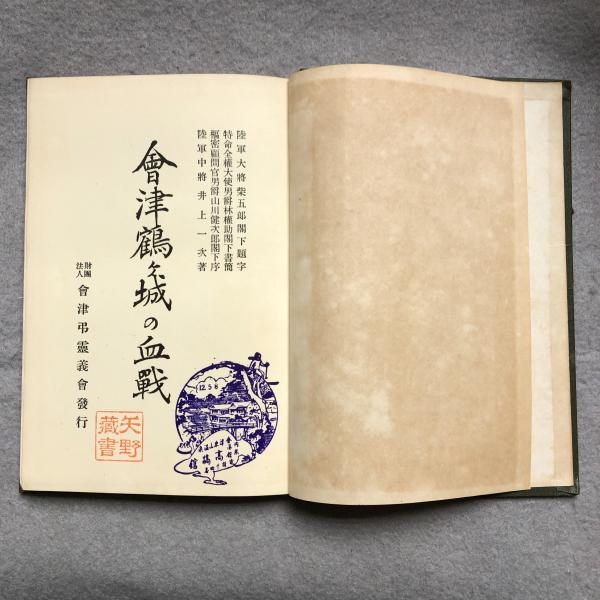 陸軍大將柴五郎閣下題字
特命全權大使男爵林權助閣下書簡
樞密顧問官男爵山川健次郎閣下序
陸軍中將井上一次著
會津鶴ヶ城の血戰
財團法人 會津弔靈義會發行
矢野藏書
12.5.8
高橋館